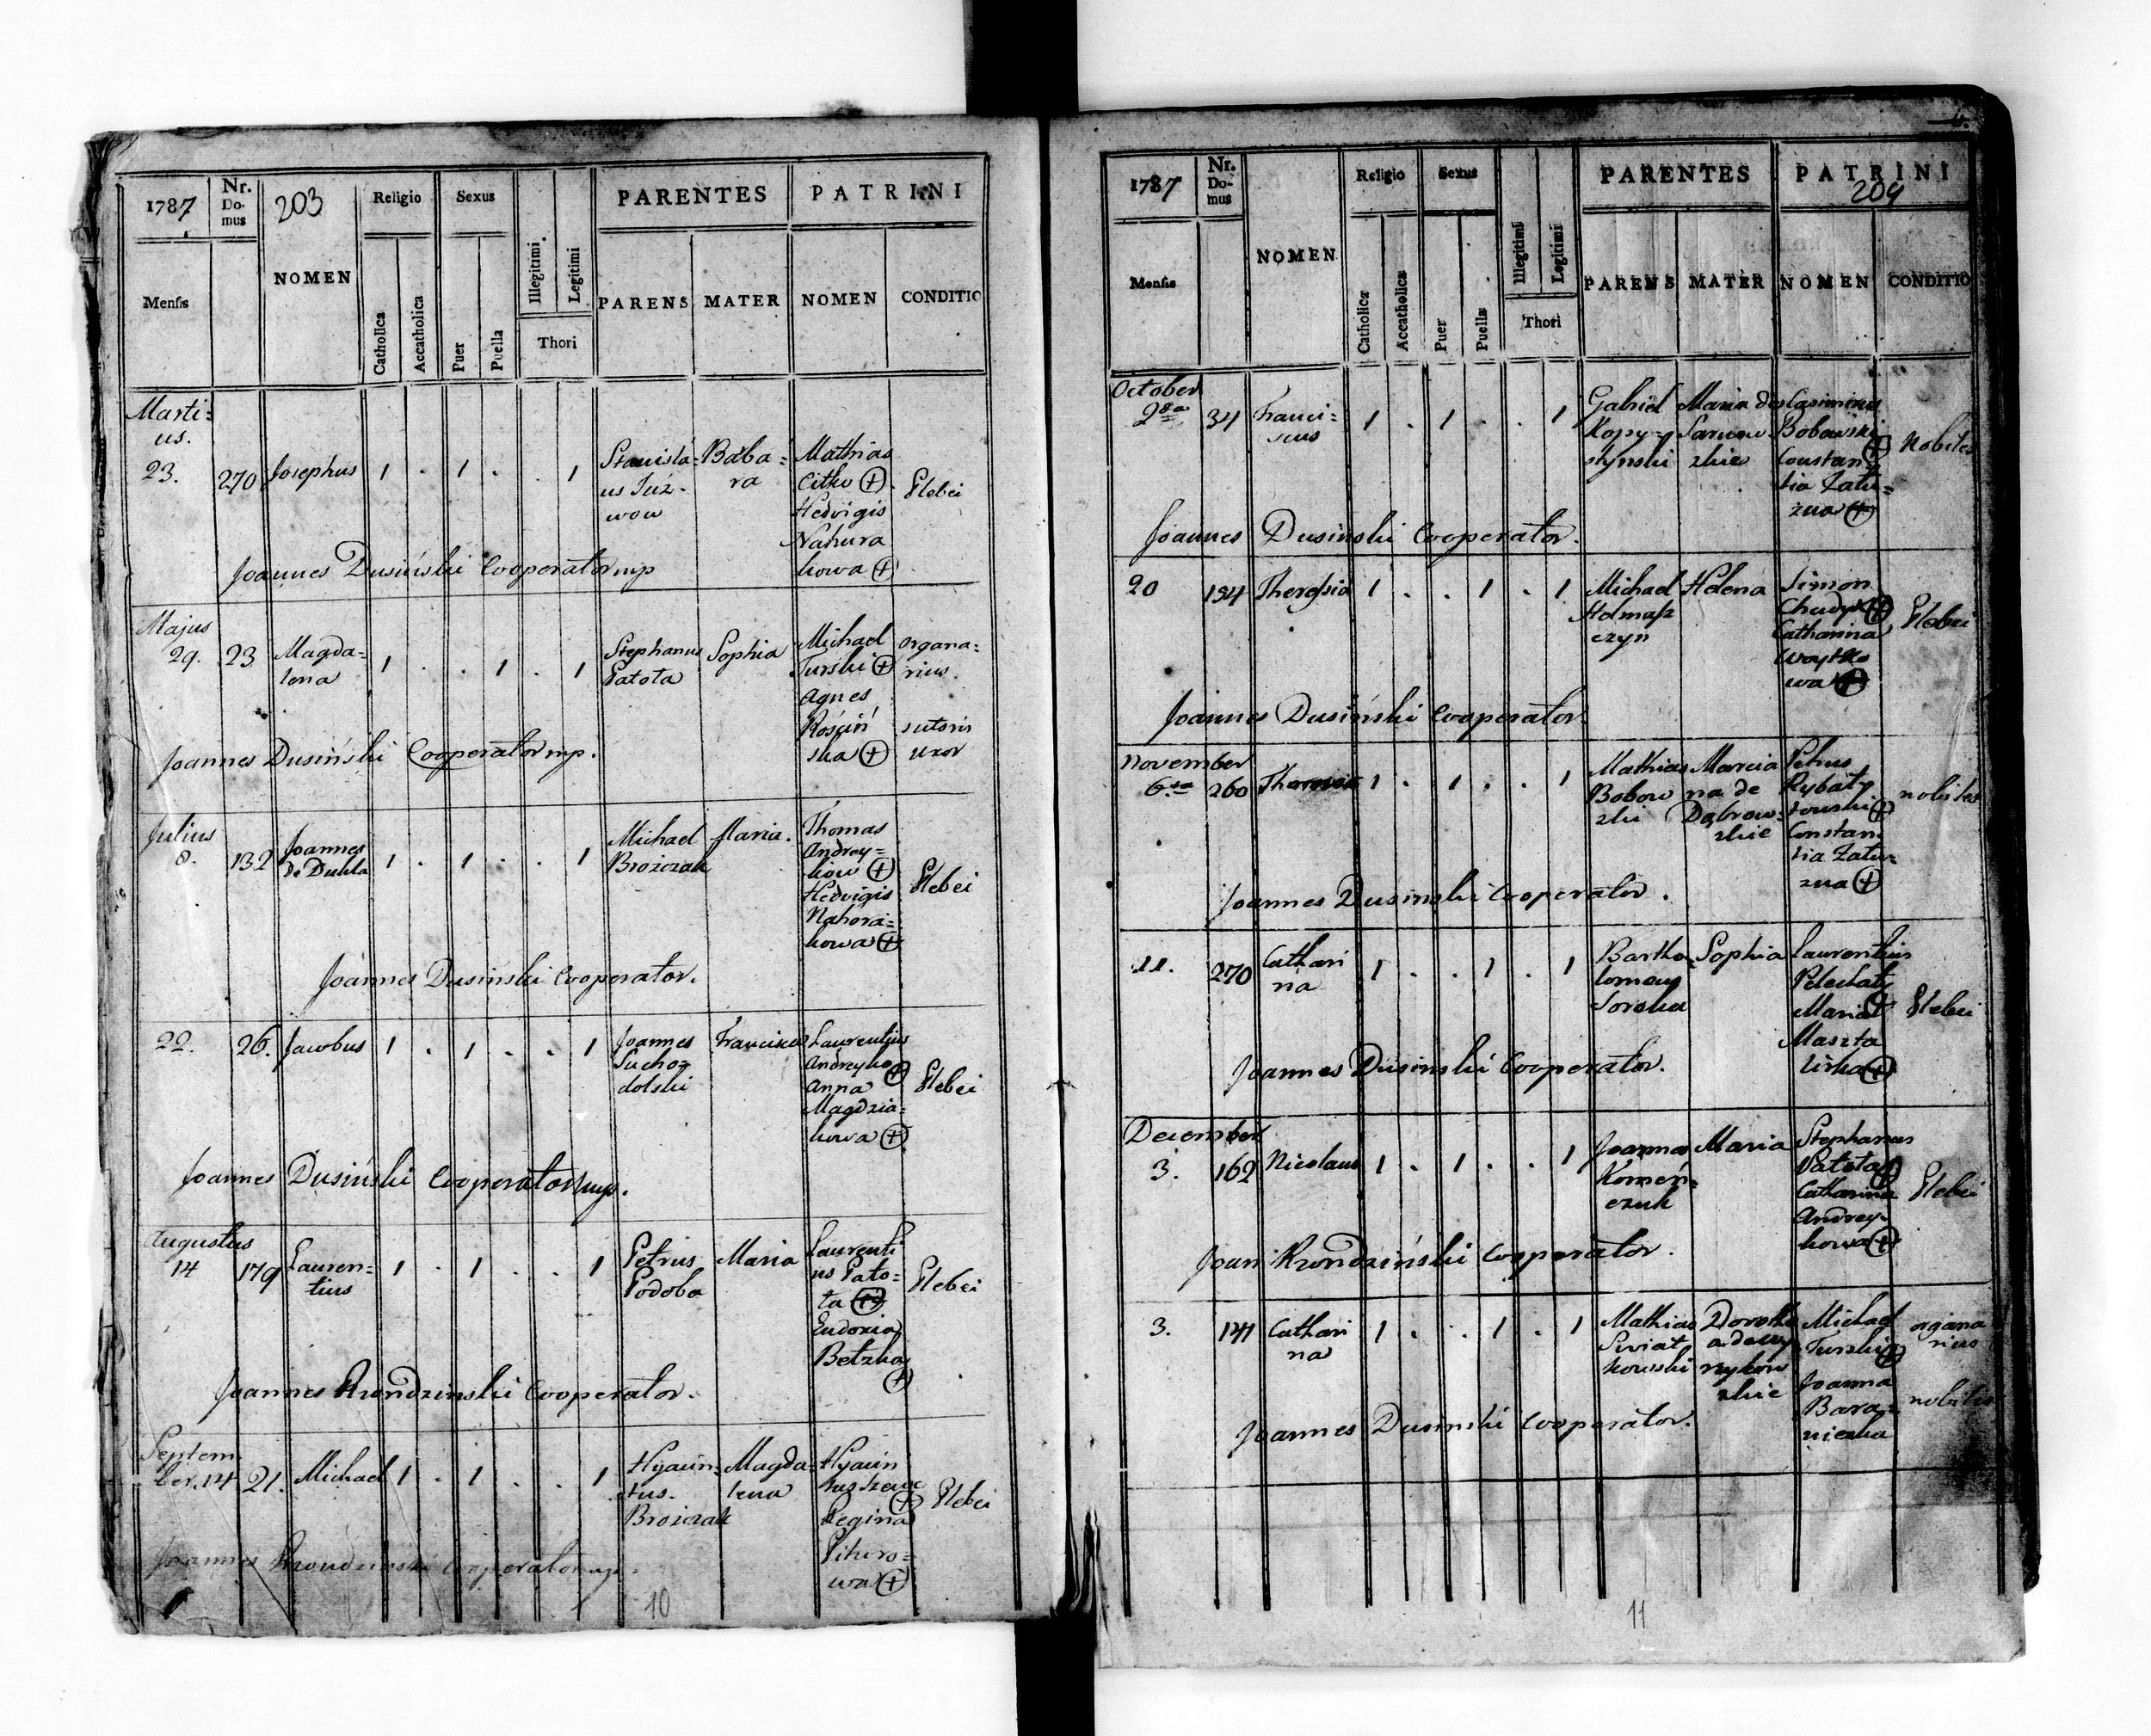 1787
Nr. Domus
203
NOMEN
Religio
Sexus
PARENTES
PATRINI
Mensis
Catholica
Accatholica
Puer
Puella
Illegitimi
Legitimi
Thori
PARENS
MATER
NOMEN
CONDITIO
Marti=
us.
23. 270 Josephus 1 . 1 . . 1
Stanisla=
us Tuz-
wow
Baba=
ra
Mathias
Citko +
Hedvigis
Nahura
kowa +
Plebei
Joannes Dusiński Cooperator mp
Majus
29. 23 Magda=
lena 1 . . 1 . 1
Stephanus
Patota
Sophia
Michael
Turski +
Agnes
Rościń
ska +
organa=
rius.
sutoris
uxor
Joannes Dusiński Cooperator mp.
Julius
8. 132 Joannes
de Dukla 1 . 1 . . 1
Michael
Brożczak
Maria.
Thomas
Andrey=
kow +
Hedvigis
Nahora=
kowa +
Plebei
Joannes Dusinski Cooperator.
22. 26. Jacobus 1 . 1 . . 1
Joannes
Sucho=
dolski
Francisca
Laurentius
Andreyko +
Anna
Magdzia=
kowa +
Plebei
Joannes Dusiński Cooperator mp.
Augustus
14 179 Lauren=
tius 1 . 1 . . 1
Petrus
Podoba
Maria
Laurenti
us Pato=
ta +
Eudoxia
Betzka
+
Plebei
Joannes Krondzinski Cooperator.
Septem
ber. 14 21. Michael 1 . 1 . . 1
Hyacin=
tus.
Brożczak
Magda=
lena
Hyacin
tus
+
Regina
Pikoro=
wa +
Plebei
Joannes Krondzinski Cooperator mp.
10
1787
Nr. Domus
NOMEN
Religio
Sexus
PARENTES
PATRINI
204
Mensis
Catholica
Accatholica
Puer
Puella
Illegitimi
Legitimi
Thori
PARENS
MATER
NOMEN
CONDITIO
October
2da 34 Franci=
scus 1 . 1 . . 1
Gabriel
Kopy=
stynski
Maria de
Sarnow
skie
Casimirus
Bobowski
+
Constan
tia Zatu=
zna +
Nobiles
Joannes Dusinski Cooperator.
20 194 Theresia 1 . . 1 . 1
Michael
Helmasz
czyn
Helena
Simon
Chudyk +
Catharina
Woytko
wa +
Plebei
Joannes Dusiński Cooperator.
November
6ta 260 1 . 1 . . 1
Mathias
Bobow
ski
Marcia
na de
Dąbrow=
skie
Petrus
Rybaty
towski +
Constan=
tia Zatu=
zna +
nobiles
Joannes Dusinski Cooperator.
11. 270 Cathari
na 1 . . 1 . 1
Bartho
lomeus
Soroka
Sophia
Laurentius
Pelechaty
Maria +
Maszta
lirka +
Plebei
Joannes Dusinski Cooperator.
December
3. 162 Nicolaus 1 . 1 . . 1
Joannes
Komeń=
czuk
Maria
Stephanus
Patota +
Catharina
Andrey=
kowa +
Plebei
Joan Krondziński Cooperator.
3. 141 Cathari
na 1 . . 1 . 1
Mathias
Swiat
kowski
Dorothe
a
skie
Michael
Turski +
Joanna
Bara=
niecka
organa
rius
nobilis
Joannes Dusinski Cooperator.
11